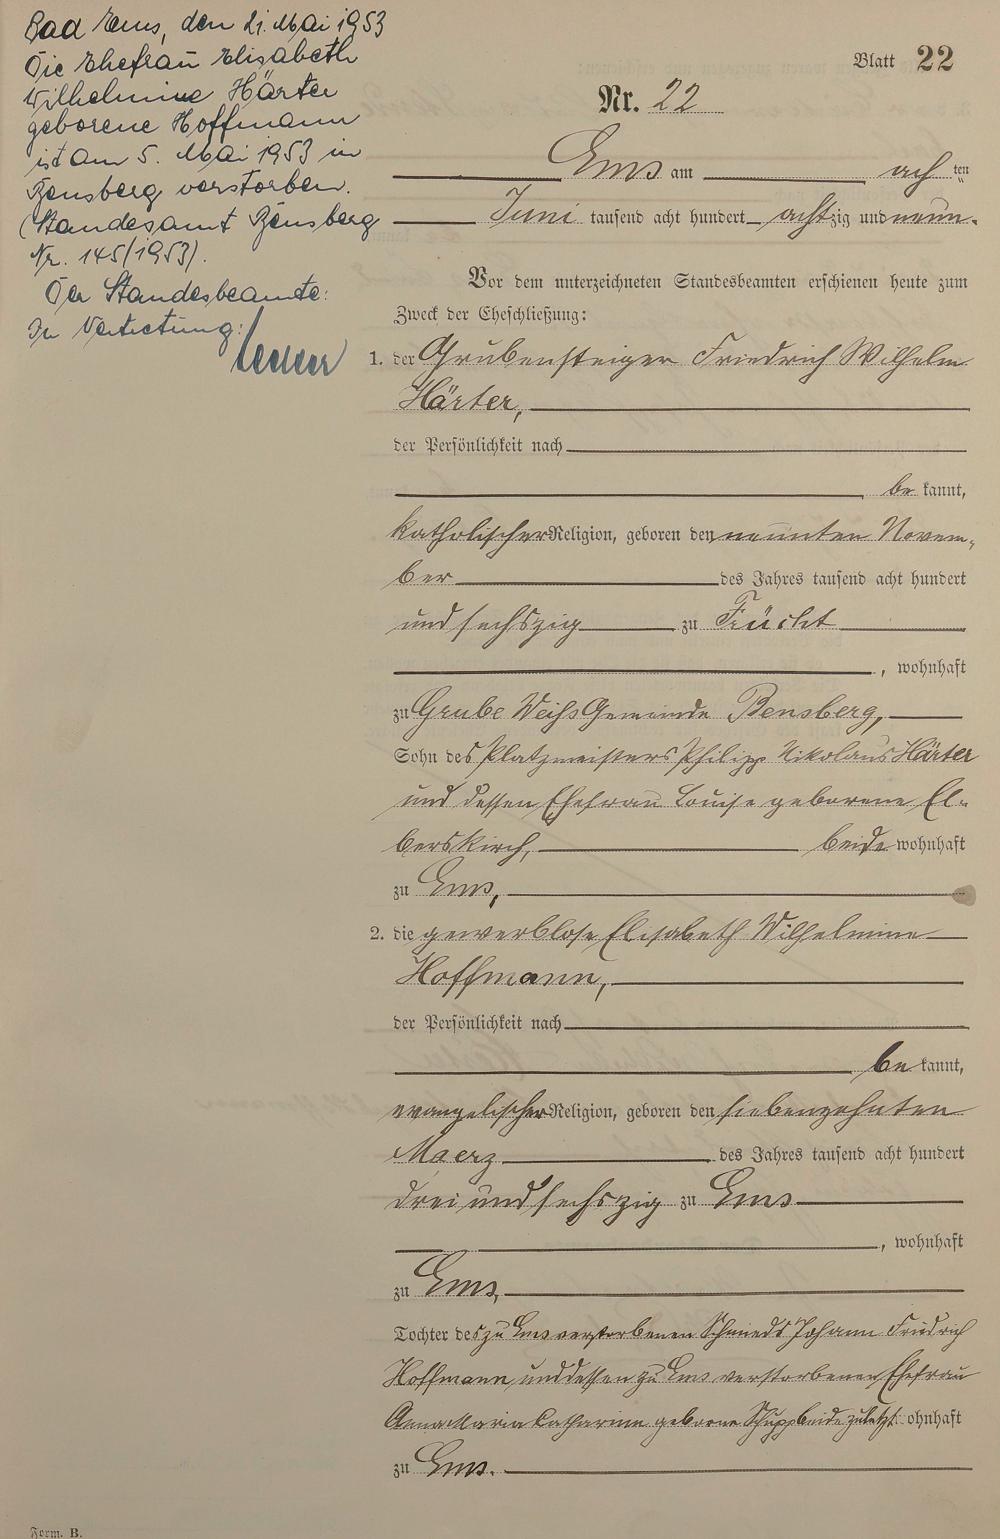 Bad Ems, den 21. Mai 1953
Die Ehefrau Elisabeth
Wilhelmine Härter
geborene Hoffmann
ist am 5. Mai 1953 in
Bensberg verstorben.
(Standesamt Bensberg
Nr. 145/1953).
Der Standesbeamte:
In Vertretung:
Blatt 22
Nr. 22
Ems am achten
Juni tausend acht hundert achtzig und neun.
Vor dem unterzeichneten Standesbeamten erschienen heute zum
Zweck der Eheschließung:
1. der Grubensteiger Friedrich Wilhelm
Härter,
der Persönlichkeit nach
bekannt,
katholischer Religion, geboren den neunten Novem-
ber des Jahres tausend acht hundert
und sechszig zu Frücht
, wohnhaft
zu Grube Weiß Gemeinde Bensberg,
Sohn des Platzmeisters Philipp Nikolaus Härter
und dessen Ehefrau Louise geborene El-
berskirch, beide wohnhaft
zu Ems,
2. die gewerblose Elisabeth Wilhelmine
Hoffmann,
der Persönlichkeit nach
bekannt,
evangelischer Religion, geboren den siebenzehnten
Maerz des Jahres tausend acht hundert
drei und sechszig zu Ems
, wohnhaft
zu Ems,
Tochter des zu Ems verstorbenen Schmieds Johann Friedrich
Hoffmann und dessen zu Ems verstorbenen Ehefrau
Anna Maria Catharine geborne Schupp beide zuletzt wohnhaft
zu Ems.
Form. B.